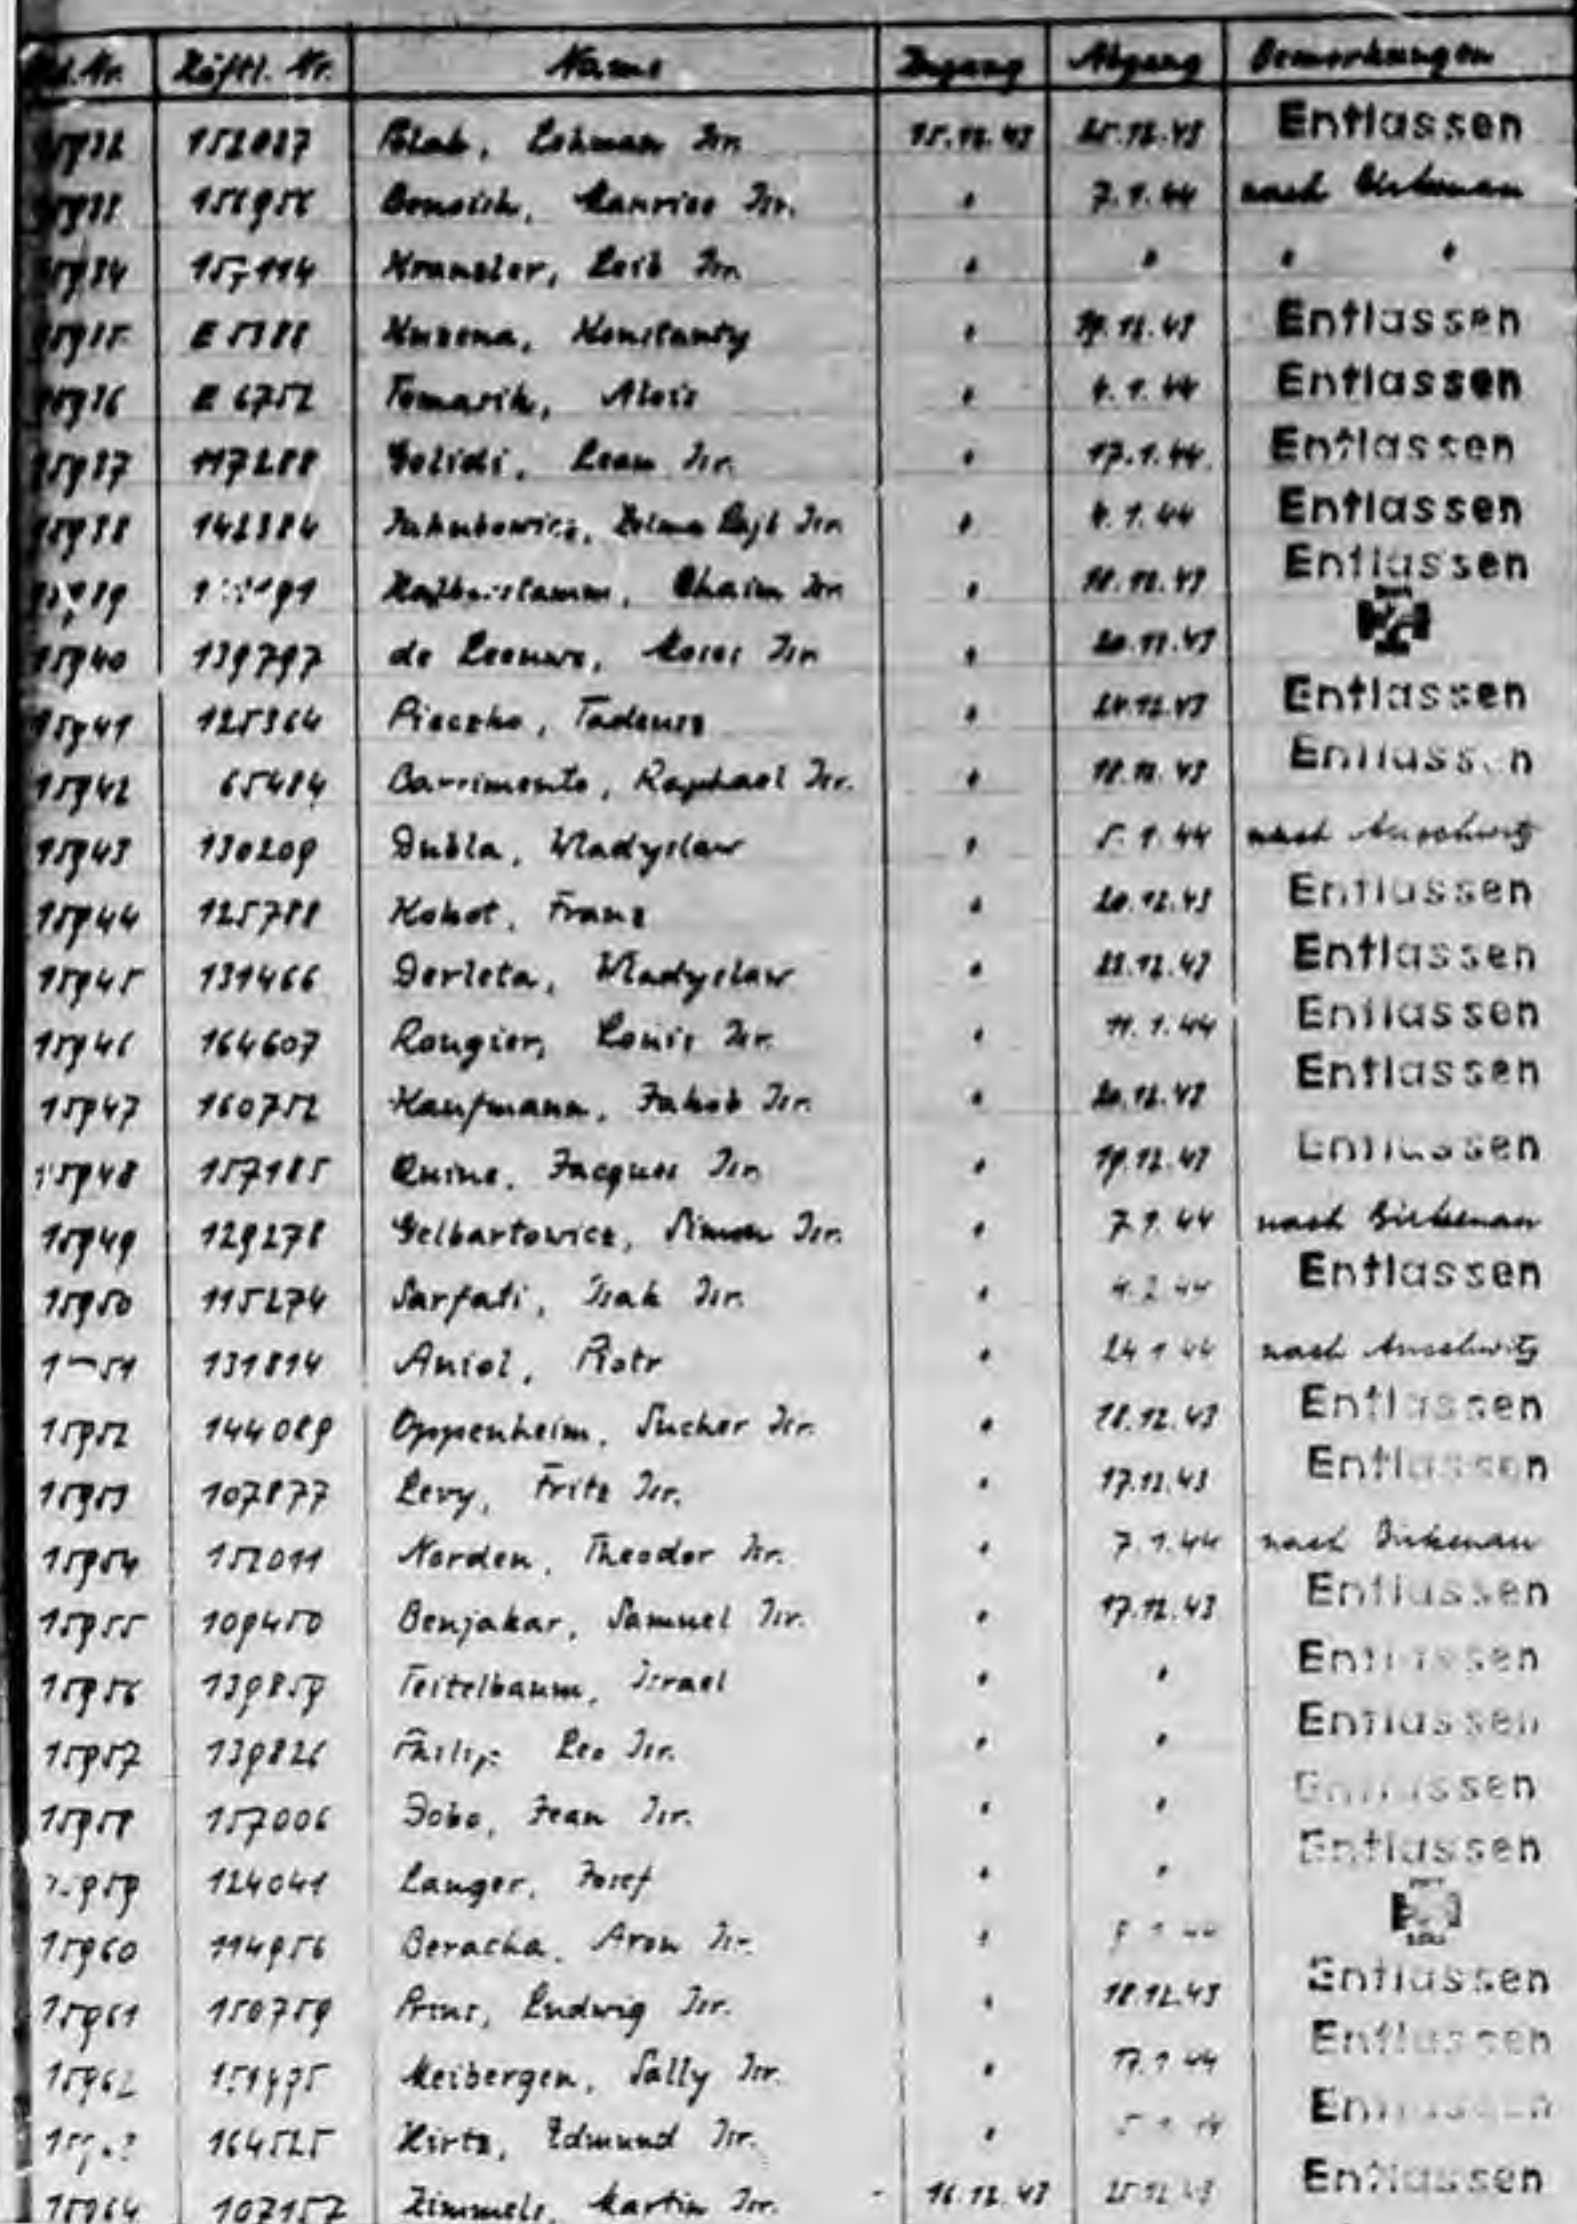 Häftl. Nr. Name Zugang Abgang Bemerkungen
15932 152027 Polak, Lehman Isr. 15.12.43 25.12.43 Entlassen
156956 Benoich, Maurice Isr. " 7.1.44 nach Birkenau
15934 Kranzler, Leib Isr. " " " "
15935 E 5388 Kuzena, Konstanty " 19.12.43 Entlassen
15936 E 6752 Tomasik, Alois " 4.1.44 Entlassen
15937 117288 Leam Isr. " 17.1.44. Entlassen
15938 142384 Jakubowicz, Isr. " 4.1.44 Entlassen
15939 Chaim Isr. " 18.12.43 Entlassen
15940 139797 de Leeuwe, Moses Isr. " 20.12.43
15941 125364 Pieczko, Tadeusz " 24.12.43 Entlassen
15942 65484 Carrimento, Raphael Isr. " 18.12.43 Entlassen
15943 130209 Dubla, Wladyslaw " 5.1.44 nach Auschwitz
15944 125788 Kokot, Franz " 20.12.43 Entlassen
15945 131466 Derleta, Wladyslaw " 22.12.43 Entlassen
15946 164607 Rougier, Louis Isr. " 11.1.44 Entlassen
15947 160752 Kaufmann, Jakob Isr. " 20.12.43 Entlassen
15948 157185 Quine, Jacques Isr. " 19.12.43 Entlassen
15949 129278 Gelbartowicz, Simon Isr. " 7.1.44 nach Birkenau
15950 115274 Sarfati, Isak Isr. " 4.2.44 Entlassen
131814 Aniol, Piotr " 24.1.44 nach Auschwitz
15952 144089 Oppenheim, Sucher Isr. " 18.12.43 Entlassen
15953 107877 Levy, Fritz Isr. " 17.12.43 Entlassen
15954 152011 Norden, Theodor Isr. " 7.1.44 nach Birkenau
15955 109450 Benjakar, Samuel Isr. " 17.12.43 Entlassen
15956 139859 Teitelbaum, Israel " " Entlassen
15957 139826 Leo Isr. " " Entlassen
15958 157006 Dobo, Jean Isr. " " Entlassen
15959 124041 Langer, Josef " " Entlassen
15960 114956 Beracha, Aron Isr. "
15961 150759 Prins, Ludwig Isr. " 18.12.43 Entlassen
15962 Meibergen, Sally Isr. " 17.1.44 Entlassen
164525 Hirtz, Edmund Isr. " Entlassen
15964 107157 Zimmels, Martin Isr. 16.12.43 25.12.43 Entlassen